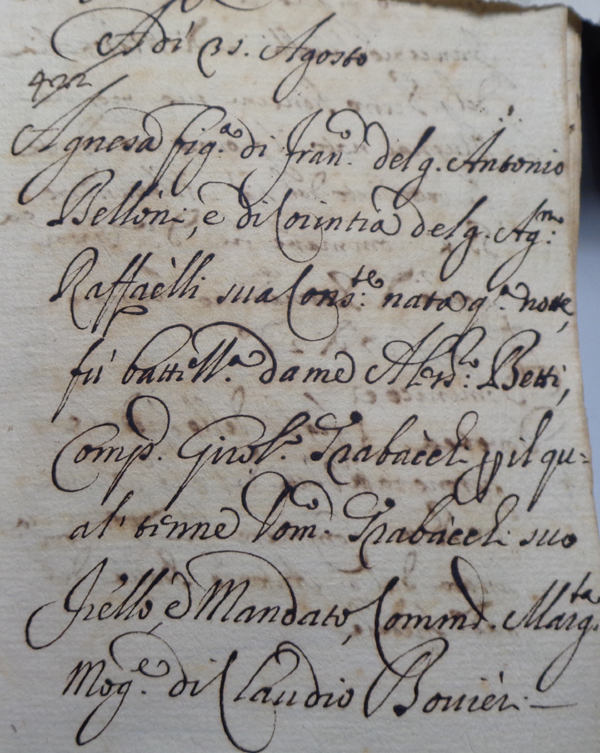 Adì 31. Agosto
422
Agnesa fig.a di Fran.o del q. Antonio
Bellòni, è di Corintia del q. Ag.no
Raffaèlli sua Cons.te: nata q.a notte,
fù batti.ta da me Aless.o: Betti,
Comp. Girol.o Trabàcch. p il qu=
al' tenne Dom.o Trabàcch. suo
Frèllo, è Mandato, Comm. Marg.ta
Mog.e di Claudio Bovièri.